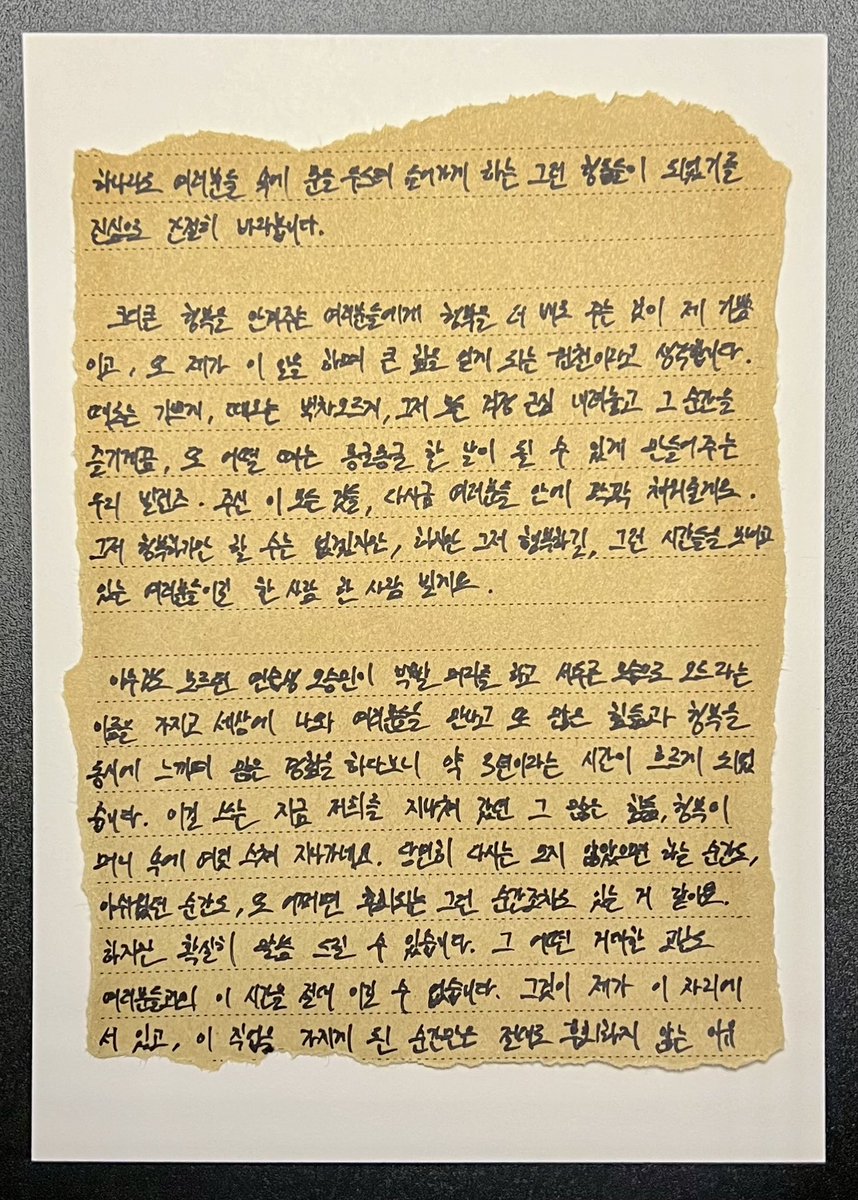 하나라도 여러분들 속에 문을 두드려 들어가게 하는 그런 형들이 되었기를
진심으로 간절히 바라봅니다.
크디큰 행복을 안겨주는 여러분들에게 행복을 더 배로 주는 것이 제 기쁨
이고, 또 제가 이 일을 하며 큰 힘을 얻게 되는 원천이라고 생각합니다.
때로는 기쁘게, 때로는 벅차오르게, 그저 모든 걱정 근심 내려놓고 그 순간을
즐기게끔, 또 어떨 때는 뭉글뭉글 한 날이 될 수 있게 만들어주는
우리 빌런즈. 주신 이 모든 것들, 다시금 여러분들 안에 꽉꽉 채워울게요.
그저 행복하기만 할 수는 없겠지만, 하지만 그저 행복하길, 그런 시간들을 보내고
있는 여러분들이길 한 사람 한 사람 빌게요.
아무것도 모르던 연습생 오승민이 빡빡 머리를 하고 서투른 모습으로 오드 라는
이름을 가지고 세상에 나와 여러분들을 만나고 또 많은 힘듦과 행복을
동시에 느끼며 많은 경험을 하다보니 약 3년이라는 시간이 흐르게 되었
습니다. 이걸 쓰는 지금 저희를 지나쳐 갔던 그 많은 힘듦, 행복이
머리 속에 여럿 스쳐 지나가네요. 당연히 다시는 오지 않았으면 하는 순간도,
아쉬웠던 순간도, 또 어쩌면 후회되는 그런 순간조차도 있는 거 같아요.
하지만 확실히 말씀 드릴 수 있습니다. 그 어떤 거대한 고난도
여러분들과의 이 시간을 절대 이길 수 없습니다. 그것이 제가 이 자리에
서 있고, 이 직업을 가지게 된 순간만은 절대로 후회하지 않는 이유